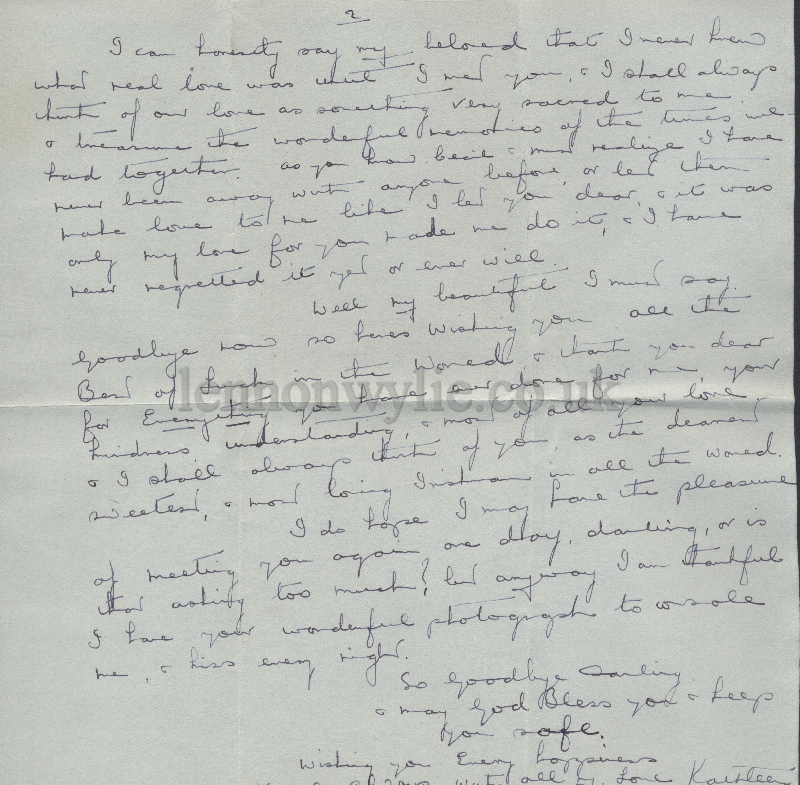 2
I can honestly say my beloved that I never knew
what real love was until I met you, & I shall always
think of our love as something very sacred to me
& treasure the wonderful memories of the times we
had together. as you know best & must realize I have
never been away with anyone before, or let them
make love to me like I let you dear, & it was
only my love for you made me do it, & I have
never regretted it yet or ever will.
Well my beautiful I must say
goodbye now so heres wishing you all the
Best of Luck in the World & thank you dear
for Everything you have ever done for me, your
kindness understanding, & most of all your love,
& I shall always think of you, as the dearest
sweetest, & most loving Irishman in all the world.
I do hope I may have the pleasure
of meeting you again one day, darling, or is
that asking too much? but anyway I am thankful
I have your wonderful photograph to console
me, & kiss every night.
So Goodbye Darling
& may God Bless you & keep
you safe.
Wishing you Every happiness
with all my Love Kathleen
lennonwylie.co.uk